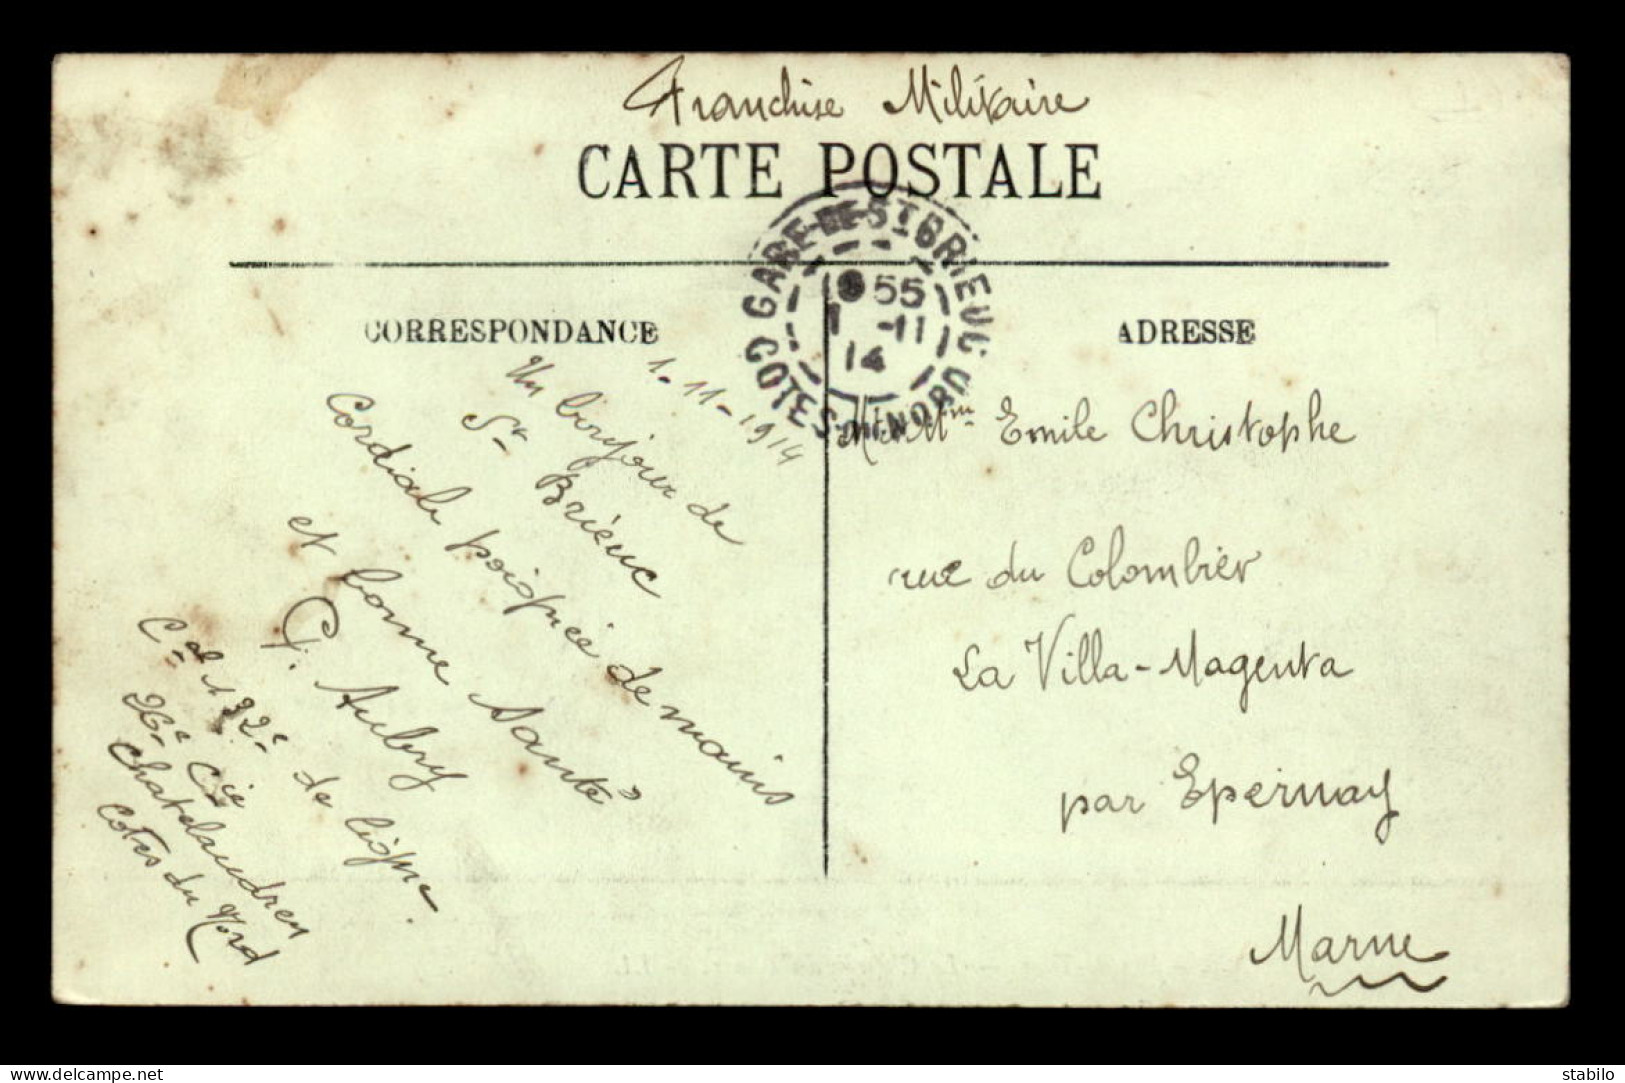 Franchise Militaire
CARTE POSTALE
GARE DE ST BRIEUC
55
1 -11
14
COTES-DU-NORD
CORRESPONDANCE
ADRESSE
1-11-1914
Un bonjour de
St Brieuc
Cordiale poignée de mains
et bonne santé
G. Aubry
Cal 132e de ligne.
26e Cie
Chatelaudren
Cotes du Nord
Mr Mme Emile Christophe
rue du Colombier
La Villa-Magenta
par Epernay
Marne
www.delcampe.net
stabilo